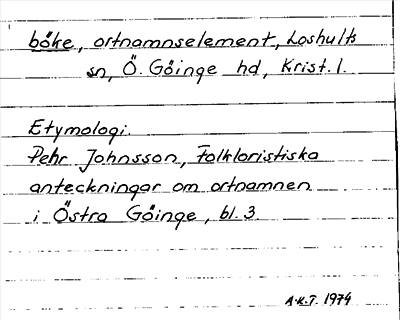 båke, ortnamnselement, Loshults
sn, Ö. Göinge hd, Krist. l.
Etymologi.
Pehr Johnsson, Folkloristiska
anteckningar om ortnamnen
i Östra Göinge, bl. 3
A.K.T. 1974